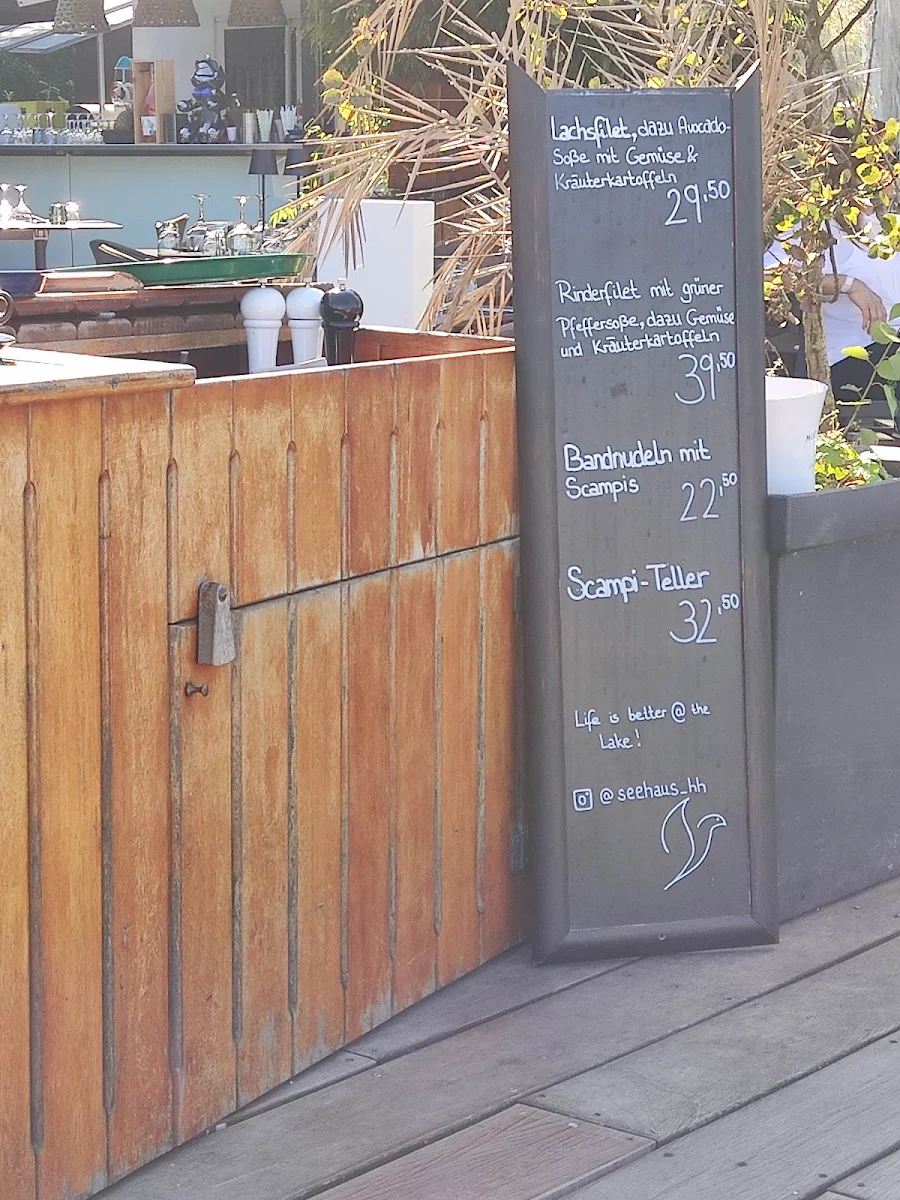 Lachsfilet, dazu Avocado-
Soße mit Gemüse &
Kräuterkartoffeln
29,50
Rinderfilet mit grüner
Pfeffersoße, dazu Gemüse
und Kräuterkartoffeln
39,50
Bandnudeln mit
Scampis
22,50
Scampi-Teller
32,50
Life is better @ the
Lake!
@seehaus_hh